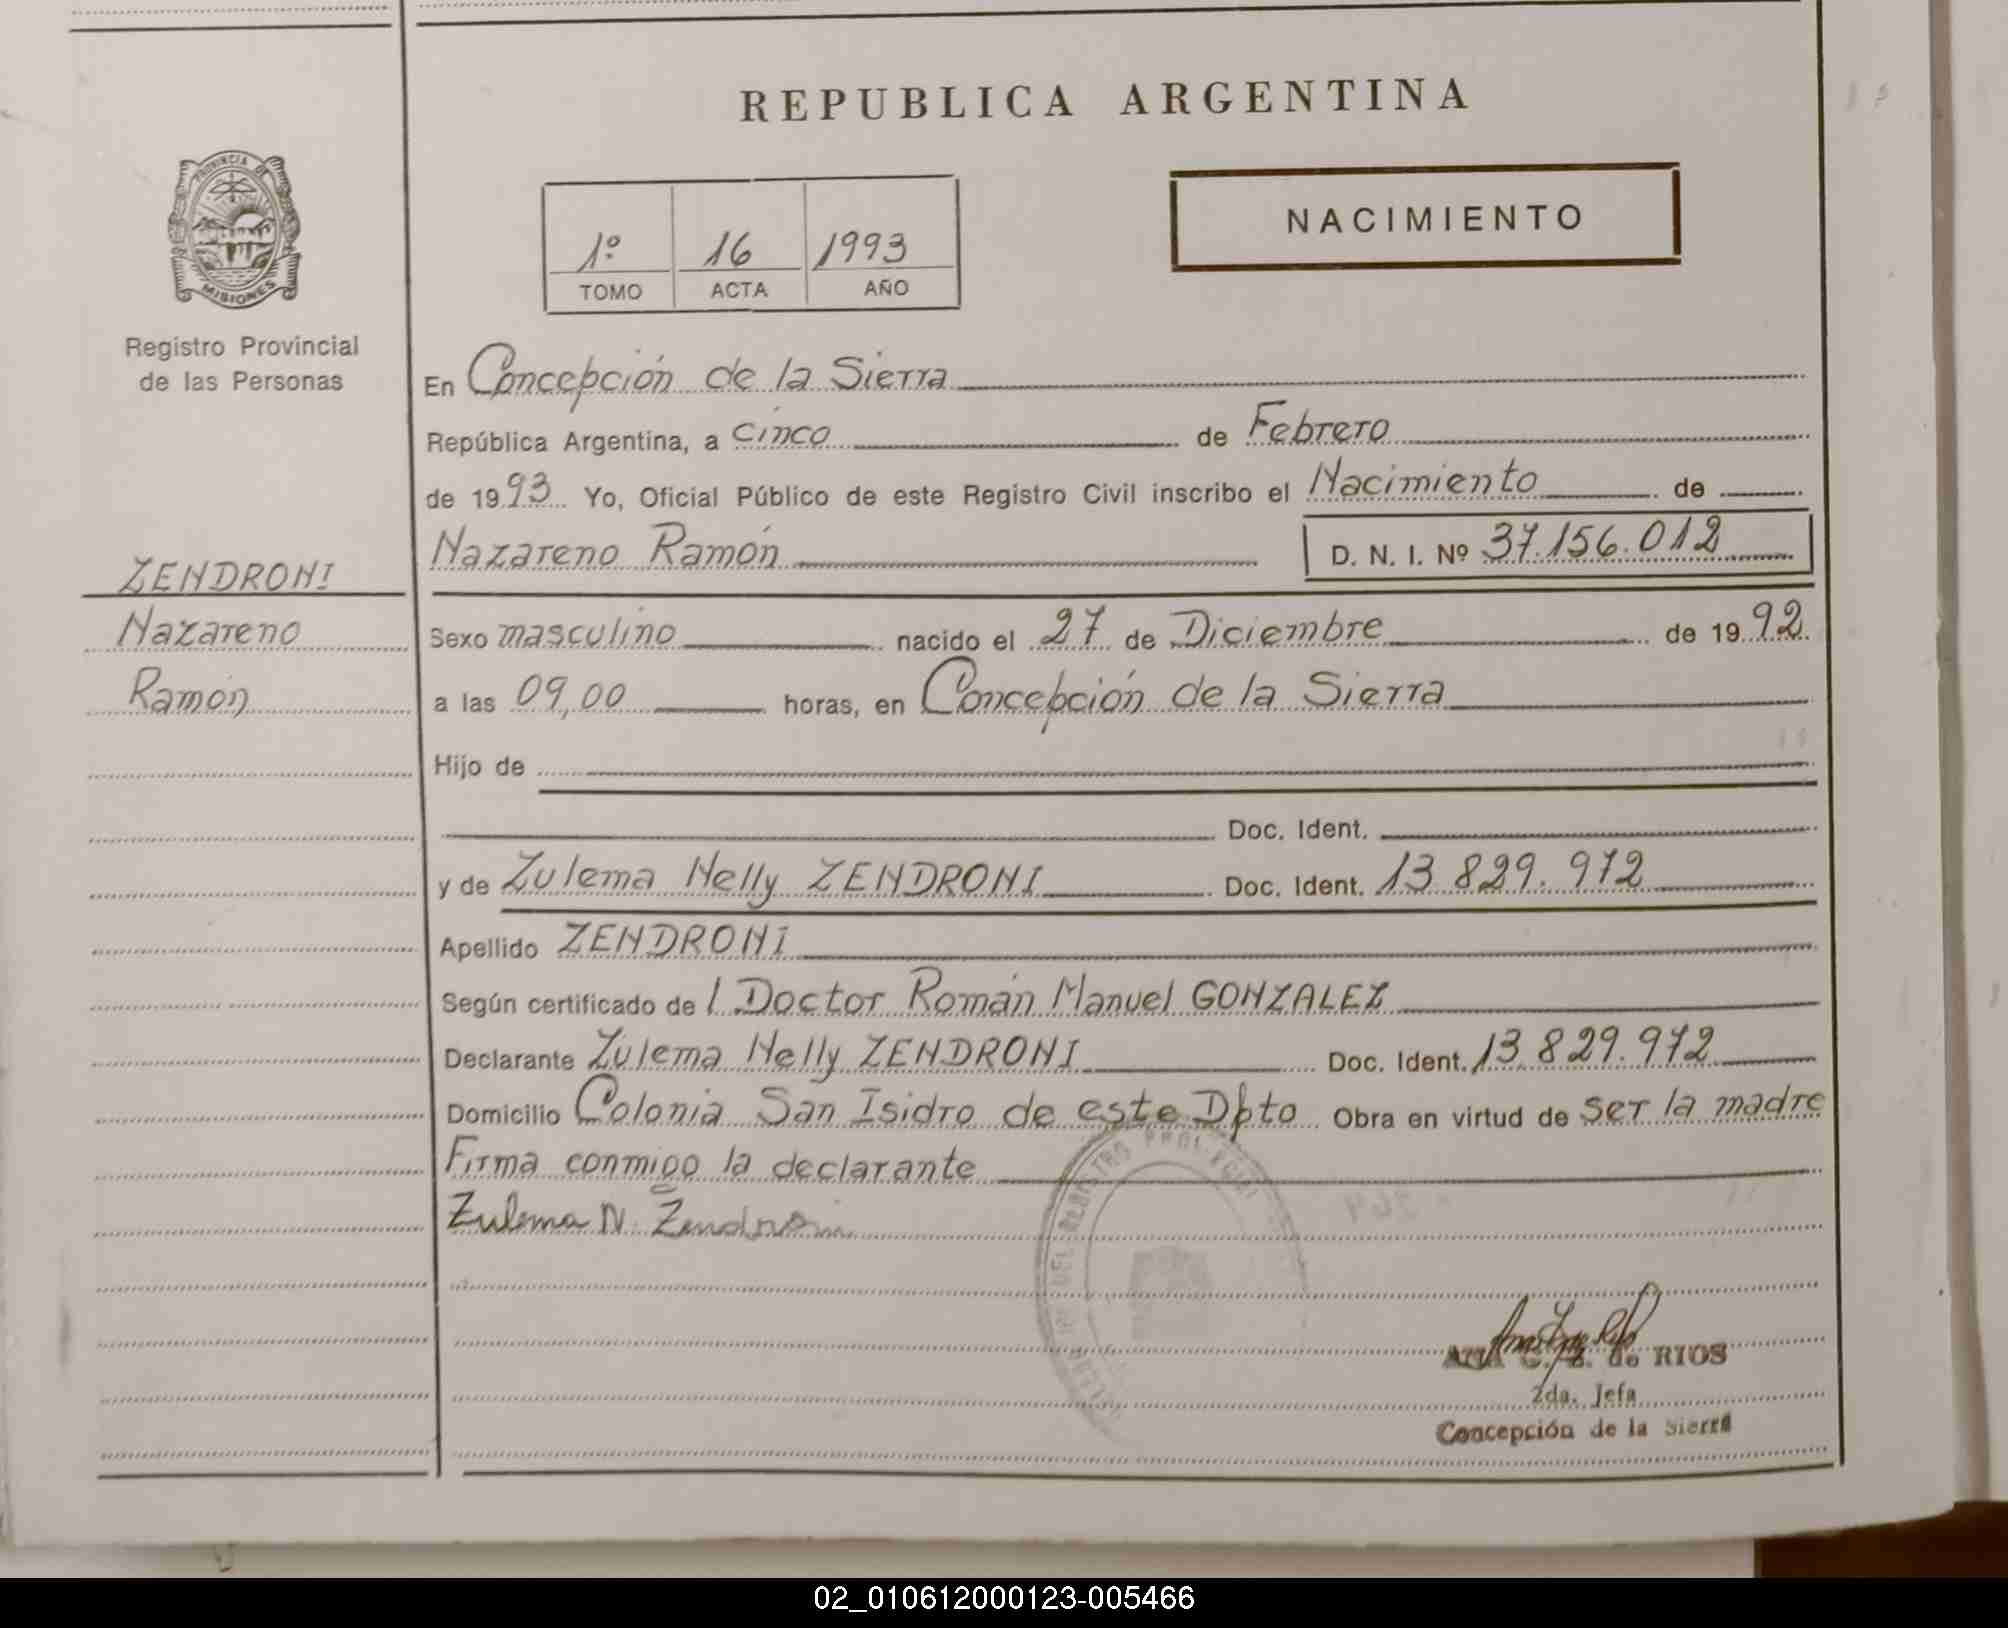 REPUBLICA ARGENTINA
PROVINCIA DE
MISIONES
Registro Provincial
de las Personas
1º 16 1993
TOMO ACTA AÑO
NACIMIENTO
ZENDRONI
Nazareno
Ramón
En Concepción de la Sierra
República Argentina, a cinco de Febrero
de 1993 Yo, Oficial Público de este Registro Civil inscribo el Nacimiento de
Nazareno Ramón D. N. I. Nº 37.156.012
Sexo masculino nacido el 27 de Diciembre de 1992
a las 09,00 horas, en Concepción de la Sierra
Hijo de
Doc. Ident.
y de Zulema Nelly ZENDRONI Doc. Ident. 13.829.972
Apellido ZENDRONI
Según certificado de l Doctor Román Manuel GONZALEZ
Declarante Zulema Nelly ZENDRONI Doc. Ident. 13.829.972
Domicilio Colonia San Isidro de este Dpto Obra en virtud de ser la madre
Firma conmigo la declarante
Zulema N. Zendroni
DEL REGISTRO PROVINCIAL
de RIOS
2da. Jefa
Concepción de la Sierra
02_010612000123-005466